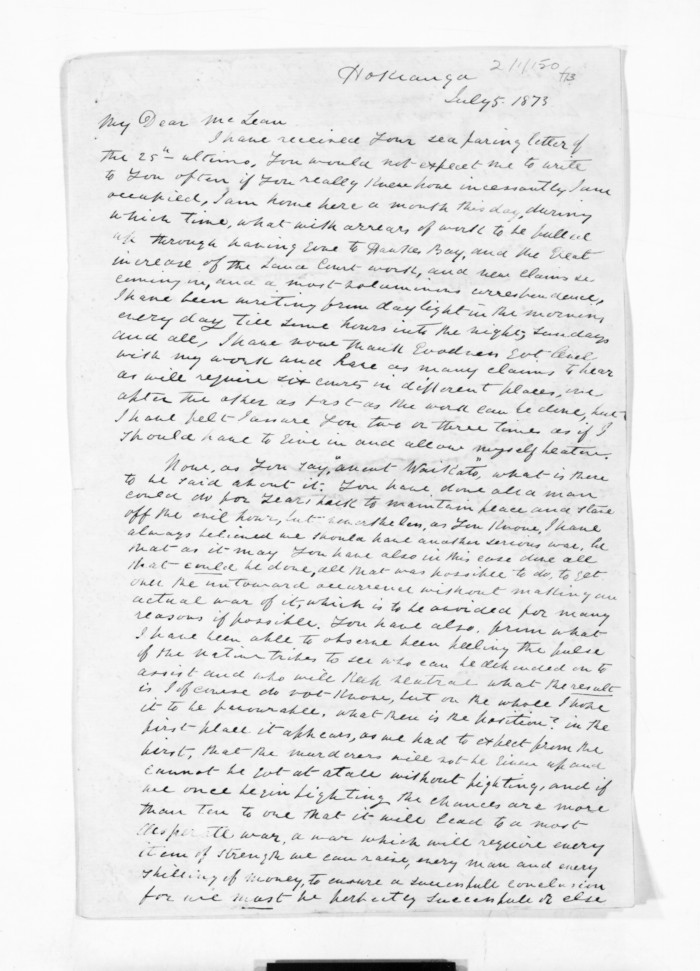 Hokianga 2/1/150
July 5. 1873 /13
My Dear McLean
I have received Your sea faring letter of
the 25th ultimo, You would not expect me to write
to You often if You really knew how incessantly I am
occupied, I am home here a month this day, during
which time, what with arrears of work to be pulled
up through having Gone to Hawkes Bay, and the Great
increase of the Land Court work, and new claims so
coming in, and a most voluminous correspondence,
I have been writing from daylight in the morning
every day till some hours into the night, Sundays
and all, I have now thank Goodness Got level
with my work and have as many claims to hear
as will require six courts in different places, one
after the other as fast as the work can be done, but
I have felt I assure You two or three times as if I
should have to Give in and allow myself beaten.
Now, as You say, "anent Waikato", what is there
to be said about it; You have done all a man
could do for Years back to maintain peace and stave
off the evil hour, but nonetheless, as You know, I have
always believed we should have another serious war, be
that as it may You have also in this case done all
that could be done, all that was possible to do, to get
over the untoward occurrence without making an
actual war of it, which is to be avoided for many
reasons if possible. You have also, from what
I have been able to observe been feeling the pulse
of the native tribes to see who can be depended on to
assist and who will keep neutral what the result
is I of course do not know, but on the whole I hope
it to be favourable. what then is the position? in the
first place it appears, as we had to expect from the
first, that the murderers will not be Given up and
cannot be got at atall without fighting, and if
we once begin fighting the chances are more
than ten to one that it will lead to a most
desperate war, a war which will require every
item of strength we can raise, every man and every
shilling of money, to ensure a successfull conclusion
for we must be perfectly successfull or else